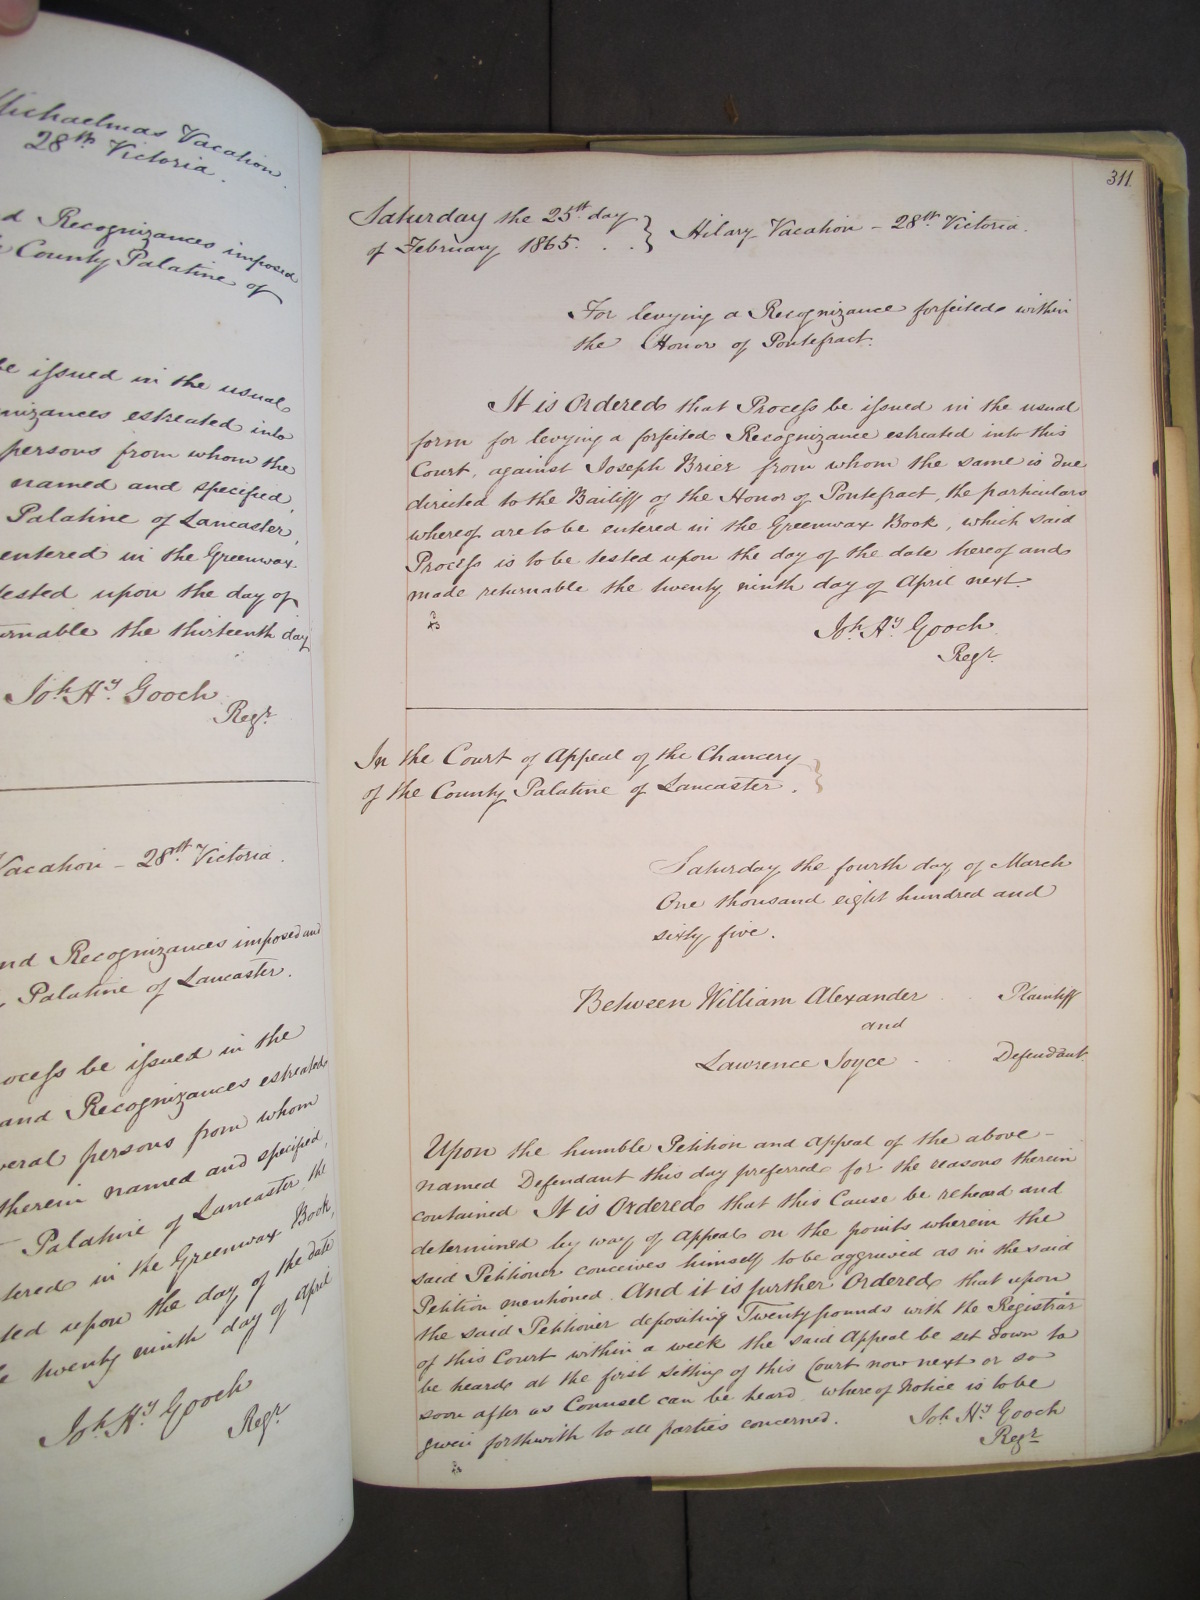 Michaelmas Vacation.
28th Victoria.
d Recognizances imposed
County Palatine of
be issued in the usual
nizances estreated into
persons from whom the
named and specified
Palatine of Lancaster,
entered in the Greenwax
tested upon the day of
urnable the thirteenth day
Joh. Hy. Gooch
Regr.
Vacation - 28th Victoria.
nd Recognizances imposed and
Palatine of Lancaster.
ocess be issued in the
and Recognizances estreated
veral persons from whom
therein named and specified,
Palatine of Lancaster the
tered in the Greenwax Book,
ted upon the day of the date
twenty ninth day of April
Joh. Hy. Gooch
Regr.
311
Saturday the 25th day
of February 1865. . . } Hilary Vacation - 28th Victoria.
For levying a Recognizance forfeited within
the Honor of Pontefract.
It is Ordered that Process be issued in the usual
form for levying a forfeited Recognizance estreated into this
Court, against Joseph Brier from whom the same is due
directed to the Bailiff of the Honor of Pontefract, the particulars
whereof are to be entered in the Greenwax Book, which said
Process is to be tested upon the day of the date hereof and
made returnable the twenty ninth day of April next.
Joh. Hy. Gooch
Regr.
In the Court of Appeal of the Chancery
of the County Palatine of Lancaster. }
Saturday the fourth day of March
One thousand eight hundred and
sixty five.
Between William Alexander . . Plaintiff
and
Lawrence Joyce . . Defendant.
Upon the humble Petition and Appeal of the above-
named Defendant this day preferred for the reasons therein
contained It is Ordered that this Cause be reheard and
determined by way of Appeal on the points wherein the
said Petitioner conceives himself to be aggrieved as in the said
Petition mentioned. And it is further Ordered that upon
the said Petitioner depositing Twenty pounds with the Registrar
of this Court within a week the said Appeal be set down to
be heard at the first sitting of this Court now next or so
soon after as Counsel can be heard whereof Notice is to be
given forthwith to all parties concerned.
Joh. Hy. Gooch
Regr.